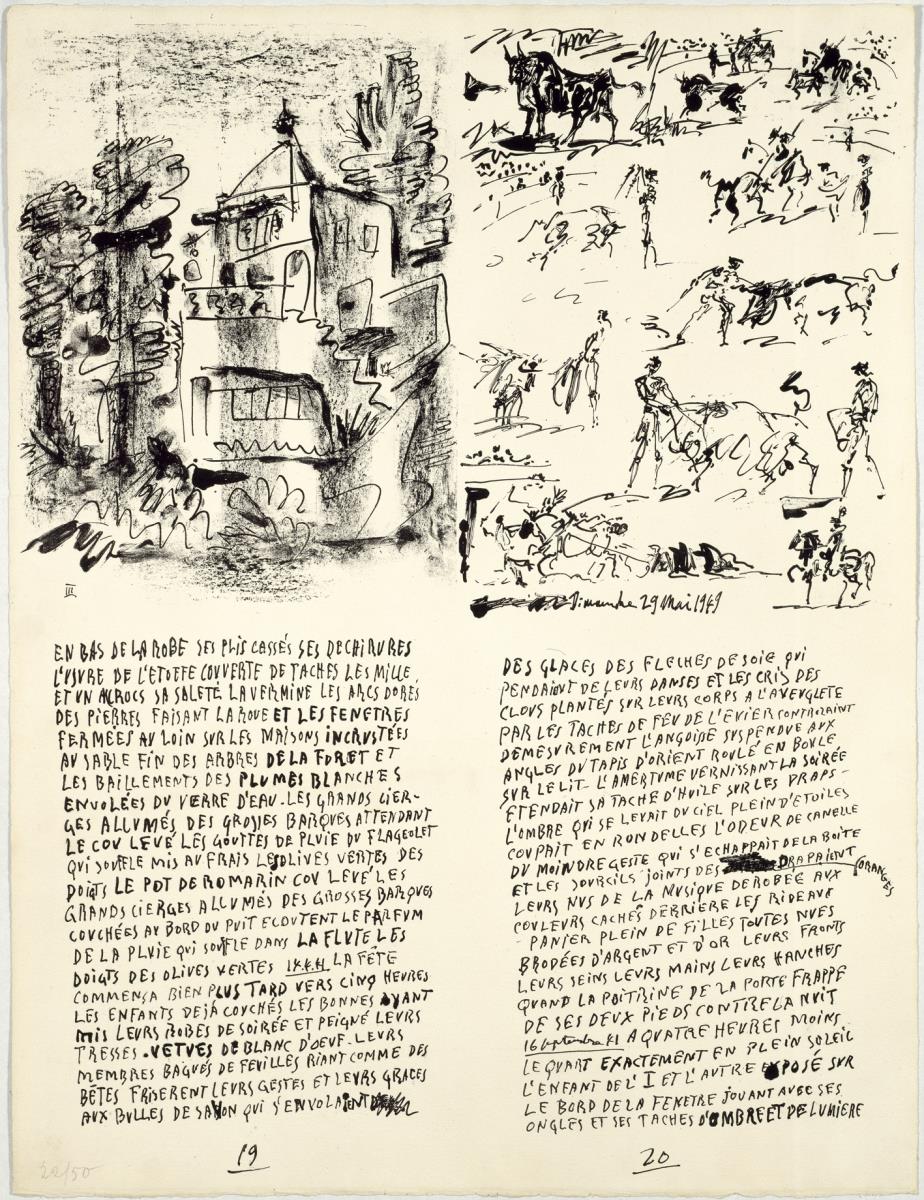 Dimanche 29 Mai 1949
III
EN BAS DE LA ROBE SES PLIS CASSÉS SES DECHIRURES
L'USURE DE L'ETOFFE COUVERTE DE TACHES LES MILLE
ET UN ACROCS SA SALETÉ LA VERMINE LES ARCS DORÉS
DES PIERRES FAISANT LA ROUE ET LES FENETRES
FERMÉES AU LOIN SUR LES MAISONS INCRUSTÉES
AU SABLE FIN DES ARBRES DE LA FORET ET
LES BAILLEMENTS DES PLUMES BLANCHES
ENVOLÉES DU VERRE D'EAU. LES GRANDS CIER-
GES ALLUMÉS DES GROSSES BARQUES ATTENDANT
LE COU LEVÉ LES GOUTTES DE PLUIE DU FLAGEOLET
QUI SOUFFLE MIS AU FRAIS LES OLIVES VERTES DES
DOIGTS LE POT DE ROMARIN COU LEVÉ LES
GRANDS CIERGES ALLUMÉS DES GROSSES BARQUES
COUCHÉES AU BORD DU PUIT ECOUTENT LE PARFUM
DE LA PLUIE QUI SOUFFLE DANS LA FLUTE LES
DOIGTS DES OLIVES VERTES LA FÊTE
COMMENSA BIEN PLUS TARD VERS CINQ HEURES
LES ENFANTS DEJÀ COUCHÉS LES BONNES AYANT
MIS LEURS ROBES DE SOIRÉE ET PEIGNÉ LEURS
TRESSES. VETUES DE BLANC D'OEUF. LEURS
MEMBRES BAGUÉS DE FEUILLES RIANT COMME DES
BÊTES FRISERENT LEURS GESTES ET LEURS GRACES
AUX BULLES DE SAVON QUI S'ENVOLAIENT
19
DES GLACES DES FLECHES DE SOIE QUI
PENDAIENT DE LEURS DANSES ET LES CRIS DES
CLOUS PLANTÉS SUR LEURS CORPS A L'AVEUGLETE
PAR LES TACHES DE FEU DE L'EVIER CONTROLAINT
DEMESUREMENT L'ANGOISSE SUSPENDUE AUX
ANGLES DU TAPIS D'ORIENT ROULÉ EN BOULE
SUR LE LIT - L'AMERTUME VERNISSANT LA SOIRÉE
ETENDAIT SA TACHE D'HUILE SUR LES DRAPS -
L'OMBRE QUI SE LEVAIT DU CIEL PLEIN D'ETOILES
COUPAIT EN RONDELLES L'ODEUR DE CANELLE
DU MOINDRE GESTE QUI S'ECHAPPAIT DE LA BOITE
ET LES SOURCILS JOINTS DES DRAPAIENT ORANGES
LEURS NUS DE LA MUSIQUE DEROBÉE AUX
COULEURS CACHÉS DERRIERE LES RIDEAUX
- PANIER PLEIN DE FILLES TOUTES NUES
BRODÉES D'ARGENT ET D'OR LEURS FRONTS
LEURS SEINS LEURS MAINS LEURS HANCHES
QUAND LA POITRINE DE LA PORTE FRAPPE
DE SES DEUX PIEDS CONTRE LA NUIT
16 septembre 41 A QUATRE HEURES MOINS
LE QUART EXACTEMENT EN PLEIN SOLEIL
L'ENFANT DE L'I ET L'AUTRE EXPOSÉ SUR
LE BORD DE LA FENETRE JOUANT AVEC SES
ONGLES ET SES TACHES D'OMBRE ET DE LUMIERE
20
22/50